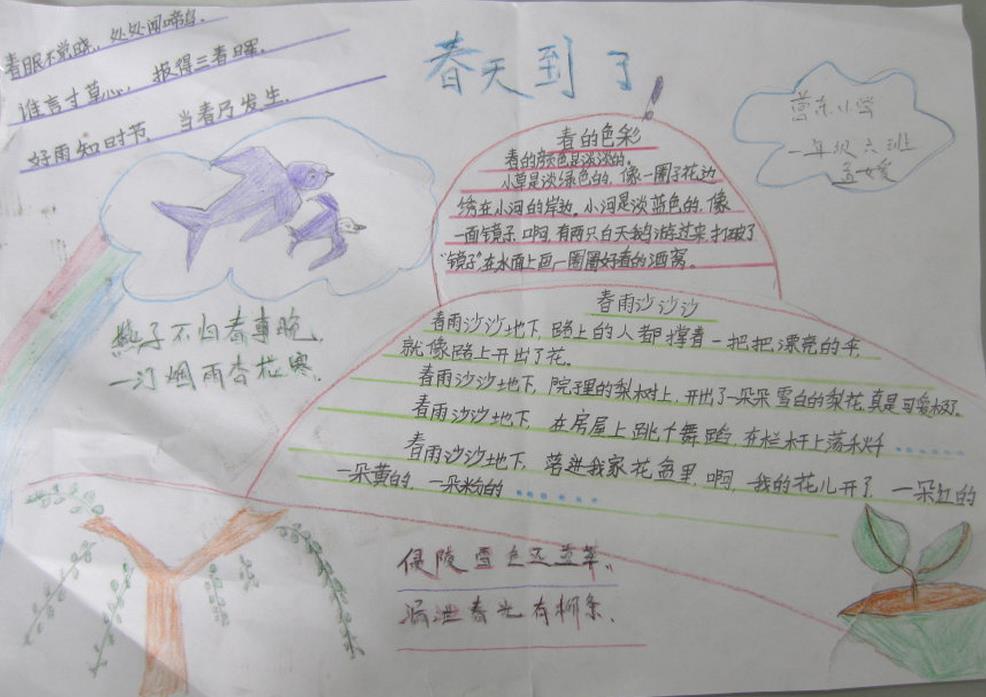 春眠不觉晓,处处闻啼鸟.
谁言寸草心,报得三春晖.
好雨知时节,当春乃发生.
春天到了!
营东小学
一年级六班
孟女爱
春的色彩
春的颜色是淡淡的。
小草是淡绿色的,像一圈子花边
绣在小河的岸边。小河是淡蓝色的,像
一面镜子,啊,有两只白天鹅游过来,打破了
"镜子",在水面上画一圈圈好看的酒窝。
燕子不归春事晚,
一汀烟雨杏花寒.
春雨沙沙沙
春雨沙沙地下,路上的人都撑着一把把漂亮的伞,
就像路上开出了花。
春雨沙沙地下,院子理的梨树上,开出了一朵朵雪白的梨花,真是可爱极了。
春雨沙沙地下,在房屋上跳个舞蹈,在栏杆上荡秋千……
春雨沙沙地下,落进我家花盆里,啊,我的花儿开了,一朵红的
一朵黄的,一朵粉的……
侵陵雪色还萱草,
漏泄春光有柳条.